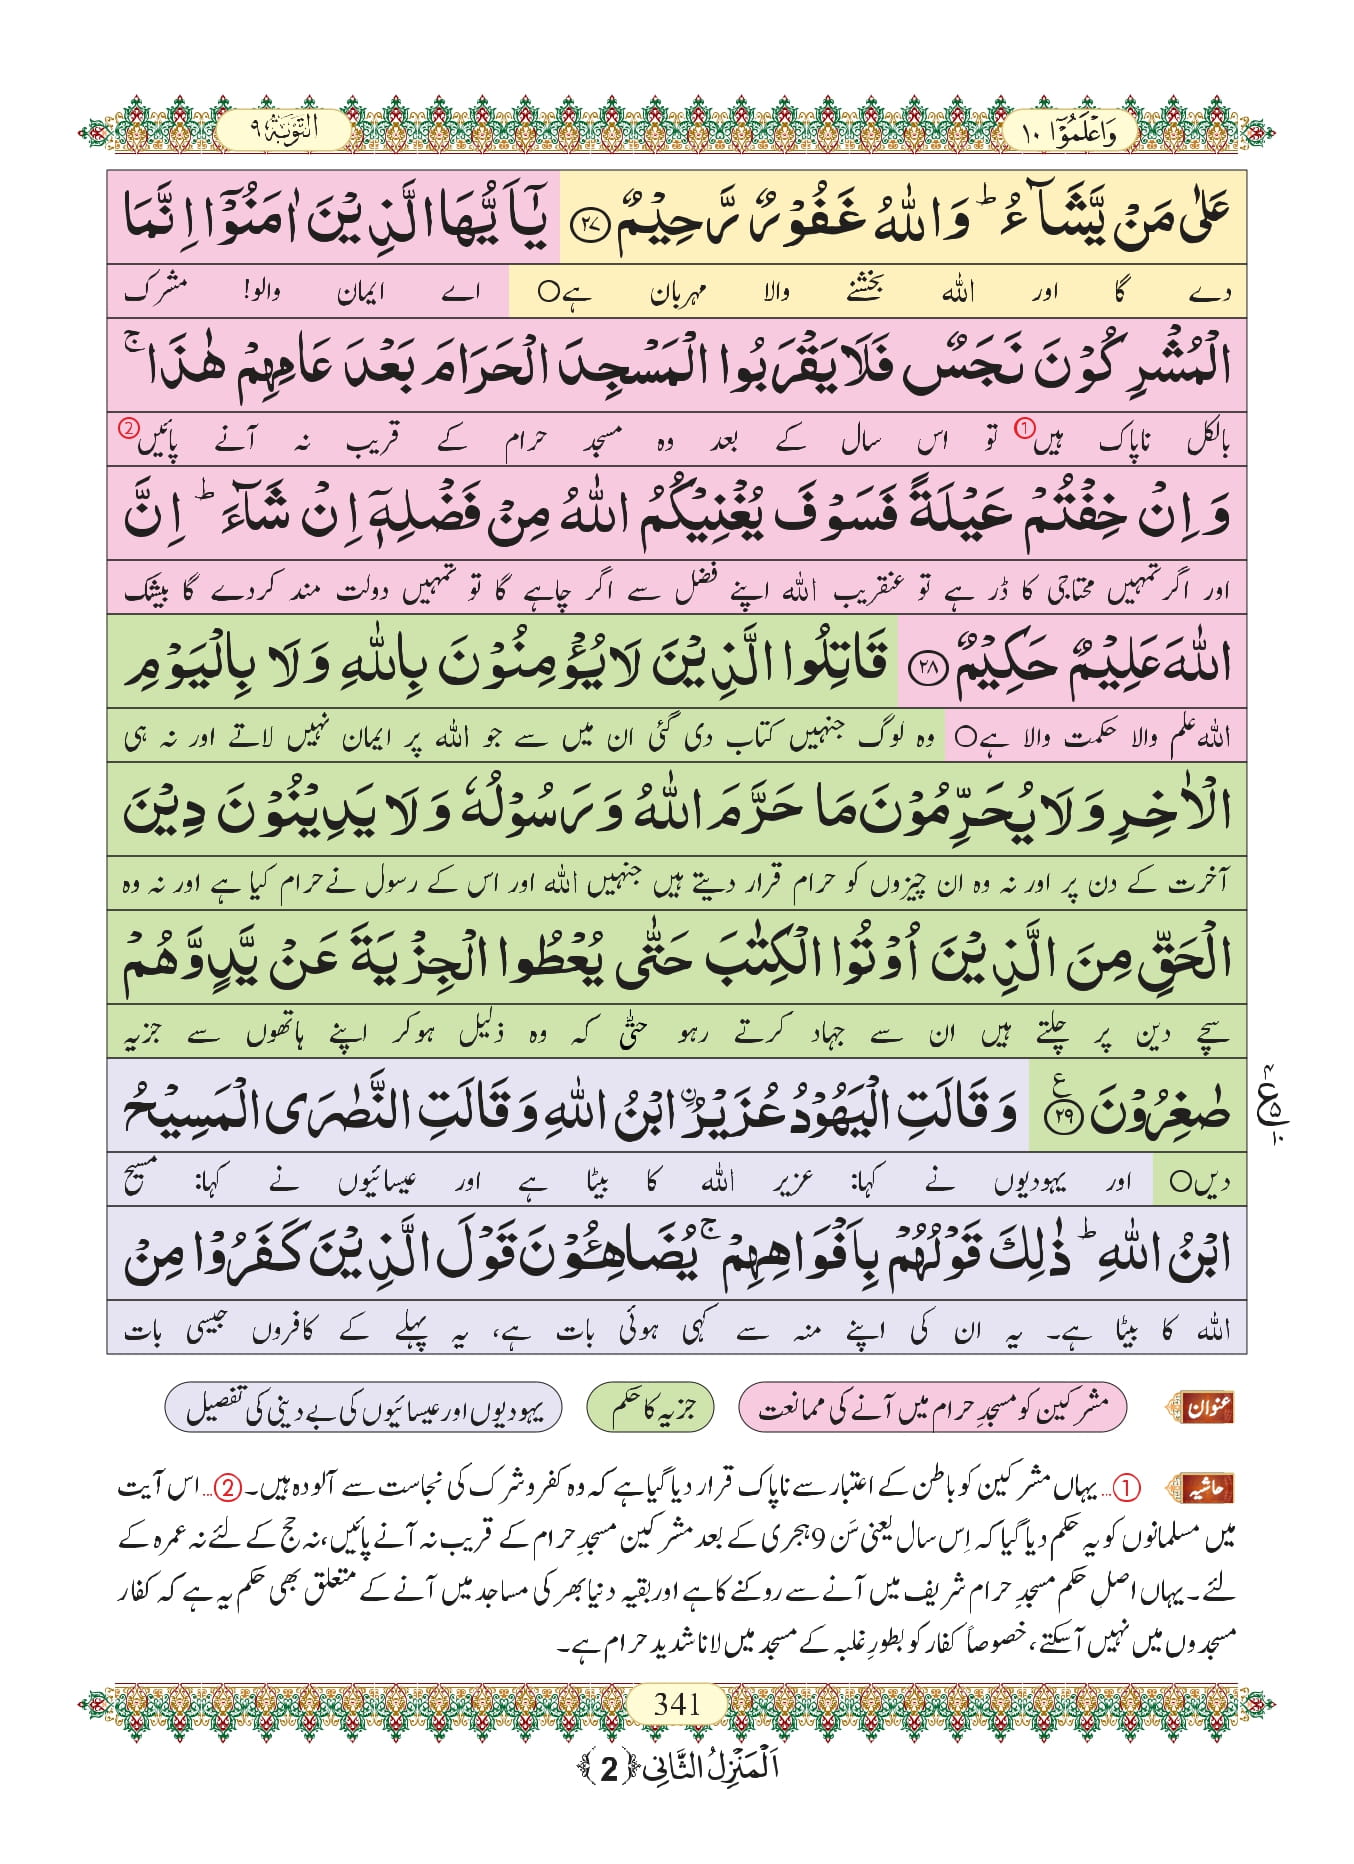 وَاعْلَمُوْۤا ۱۰
التَّوْبَۃ ۹
عَلٰى مَنْ یَّشَآءُ ؕ وَاللّٰهُ غَفُوْرٌ رَّحِیْمٌ ۲۷ یٰۤاَیُّهَا الَّذِیْنَ اٰمَنُوْۤا اِنَّمَا
دے گا اور اللہ بخشنے والا مہربان ہے○ اے ایمان والو! مشرک
الْمُشْرِكُوْنَ نَجَسٌ فَلَا یَقْرَبُوا الْمَسْجِدَ الْحَرَامَ بَعْدَ عَامِهِمْ هٰذَا ۚ
بالکل ناپاک ہیں① تو اس سال کے بعد وہ مسجد حرام کے قریب نہ آنے پائیں②
وَ اِنْ خِفْتُمْ عَیْلَةً فَسَوْفَ یُغْنِیْكُمُ اللّٰهُ مِنْ فَضْلِهٖۤ اِنْ شَآءَ ؕ اِنَّ
اور اگر تمہیں محتاجی کا ڈر ہے تو عنقریب اللہ اپنے فضل سے اگر چاہے گا تو تمہیں دولت مند کردے گا بیشک
اللّٰهَ عَلِیْمٌ حَكِیْمٌ ۲۸ قَاتِلُوا الَّذِیْنَ لَا یُؤْمِنُوْنَ بِاللّٰهِ وَ لَا بِالْیَوْمِ
اللہ علم والا حکمت والا ہے○ وہ لوگ جنہیں کتاب دی گئی ان میں سے جو اللہ پر ایمان نہیں لاتے اور نہ ہی
الْاٰخِرِ وَ لَا یُحَرِّمُوْنَ مَا حَرَّمَ اللّٰهُ وَ رَسُوْلُهٗ وَ لَا یَدِیْنُوْنَ دِیْنَ
آخرت کے دن پر اور نہ وہ ان چیزوں کو حرام قرار دیتے ہیں جنہیں اللہ اور اس کے رسول نے حرام کیا ہے اور نہ وہ
الْحَقِّ مِنَ الَّذِیْنَ اُوْتُوا الْكِتٰبَ حَتّٰى یُعْطُوا الْجِزْیَةَ عَنْ یَّدٍ وَّ هُمْ
سچے دین پر چلتے ہیں ان سے جہاد کرتے رہو حتّٰی کہ وہ ذلیل ہوکر اپنے ہاتھوں سے جزیہ
صٰغِرُوْنَ ۲۹ ع وَ قَالَتِ الْیَهُوْدُ عُزَیْرُ ۟ابْنُ اللّٰهِ وَ قَالَتِ النَّصٰرَى الْمَسِیْحُ
۴ ع ۵ ۱۰
دیں○ اور یہودیوں نے کہا: عزیر اللہ کا بیٹا ہے اور عیسائیوں نے کہا: مسیح
ابْنُ اللّٰهِ ؕ ذٰلِكَ قَوْلُهُمْ بِاَفْوَاهِهِمْ ۚ یُضَاهِـُٔوْنَ قَوْلَ الَّذِیْنَ كَفَرُوْا مِنْ
اللہ کا بیٹا ہے۔ یہ ان کی اپنے منہ سے کہی ہوئی بات ہے، یہ پہلے کے کافروں جیسی بات
عنوان مشرکین کو مسجدِ حرام میں آنے کی ممانعت جزیہ کا حکم یہودیوں اور عیسائیوں کی بے دینی کی تفصیل
حاشیہ ①... یہاں مشرکین کو باطن کے اعتبار سے ناپاک قرار دیا گیا ہے کہ وہ کفر و شرک کی نجاست سے آلودہ ہیں۔ ②... اس آیت
میں مسلمانوں کو یہ حکم دیا گیا کہ اِس سال یعنی سَن 9 ہجری کے بعد مشرکین مسجدِ حرام کے قریب نہ آنے پائیں، نہ حج کے لئے نہ عمرہ کے
لئے۔ یہاں اصل حکم مسجدِ حرام شریف میں آنے سے روکنے کا ہے اور بقیہ دنیا بھر کی مساجد میں آنے کے متعلق بھی حکم یہ ہے کہ کفار
مسجدوں میں نہیں آسکتے، خصوصاً کفار کو بطورِ غلبہ کے مسجد میں لانا شدید حرام ہے۔
341
اَلْمَنْزِلُ الثَّانِی ﴿2﴾